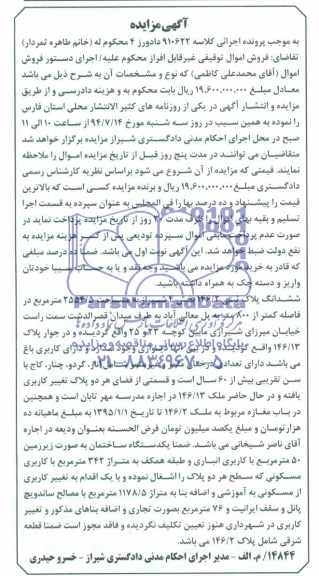 آگهی مزایده
به موجب پرونده اجرائی کلاسه ۹۱۰۶۲۲ دادورز ۴ محکوم له (خانم طاهره ثمردار)
تقاضای: فروش اموال توقیفی غیرقابل افراز محکوم علیه/ اجرای دستور فروش
اموال (آقای محمدعلی کاظمی) که نوع و مشخصات آن به شرح ذیل می باشد
معادل مبلغ ۱۹.۶۰۰.۰۰۰.۰۰۰ ریال بابت محکوم به و هزینه دادرسی و از طریق
مزایده و انتشار آگهی در یکی از روزنامه های کثیر الانتشار محلی استان فارس
را نموده به همین سبب در روز سه شنبه مورخ ۹۴/۷/۱۴ از ساعت ۱۰ الی ۱۱
صبح در محل اجرای احکام مدنی دادگستری شیراز مزایده برگزار خواهد شد
متقاضیان می توانند در مدت پنج روز قبل از تاریخ مزایده اموال را ملاحظه
نمایند. قیمتی که مزایده از آن شروع می شود براساس نظریه کارشناس رسمی
دادگستری مبلغ ۱۹.۶۰۰.۰۰۰.۰۰۰ ریال و برنده مزایده کسی است که بالاترین
قیمت را پیشنهاد و ده درصد بها را فی المجلس به عنوان سپرده به قسمت اجرا
تسلیم و بقیه بهای اموال را ظرف مدت روز از تاریخ مزایده پرداخت نماید در
صورت عدم پرداخت مابقی اموال سپرده تودیعی پس از کسر هزینه مزایده به
نفع دولت ضبط خواهد شد. این آگهی نوبت اول می باشد. ضمنا ده درصد مبلغی
که قادر به خرید مورد مزایده می باشید وجه نقد و یا به حساب سیبا خودتان
واریز و دسته چک به همراه داشته باشید.
ششدانگ پلاک به مساحت ۲۵۵۴/۵ مترمربع در
فاصله کمتر از ۸۰۰ متر به پل معالی آباد به طرف میدان قصرالدشت سمت راست
خیابان میرزای شیرازی مابین کوچه ۲۳ و ۲۵ واقع گردیده و در جوار پلاک
۱۴۶/۱۳ واقع گردیده و در بین آنها دیواری وجود ندارد و دارای کاربری باغ
می باشد دارای تعدادی درختان گردو، چنار، کاج با
سن تقریبی بیش از ۶۰ سال است و قسمتی از فضای هر دو پلاک تغییر کاربری
یافته و در حال حاضر ملک ۱۴۶/۱۳ در اجاره مدرسه مهر تابان است و همچنین
در باب مغازه مربوط به ملک ۱۴۶/۲ تا تاریخ ۱۳۹۵/۱/۱ به مبلغ ماهیانه ده
هزار تومان و مبلغ یکصد میلیون تومان قرض الحسنه بعنوان ودیعه در اجاره
آقای ناصر شیخانی می باشد. ضمنا یکدستگاه ساختمان به صورت زیرزمین
۵۰ مترمربع با کاربری انباری و طبقه همکف به متراژ ۳۴۲ مترمربع با کاربری
مسکونی که سطح هر دو پلاک را اشغال نموده و با یک اقدام به تغییر کاربری
از مسکونی به آموزشی و اضافه بنا به متراژ ۱۱۷۸/۵ مترمربع با مصالح ساندویچ
پانل و سقف ایرانیت و ۷۶ مترمربع بصورت تجاری و اضافه بناهای مذکور و تغییر
کاربری در شهرداری هنوز تعیین تکلیف نگردیده و فاقد مجوز است ضمنا قطعه
شرقی شامل پلاک ۱۴۶/۲ می باشد.
۱۴۸۴۴/ م. الف - مدیر اجرای احکام مدنی دادگستری شیراز - خسرو حیدری
ParsNamadData
پایگاه اطلاع رسانی مناقصه و مزایده
۰۲۱-۸۸۳۴۹۶۷۰-۵